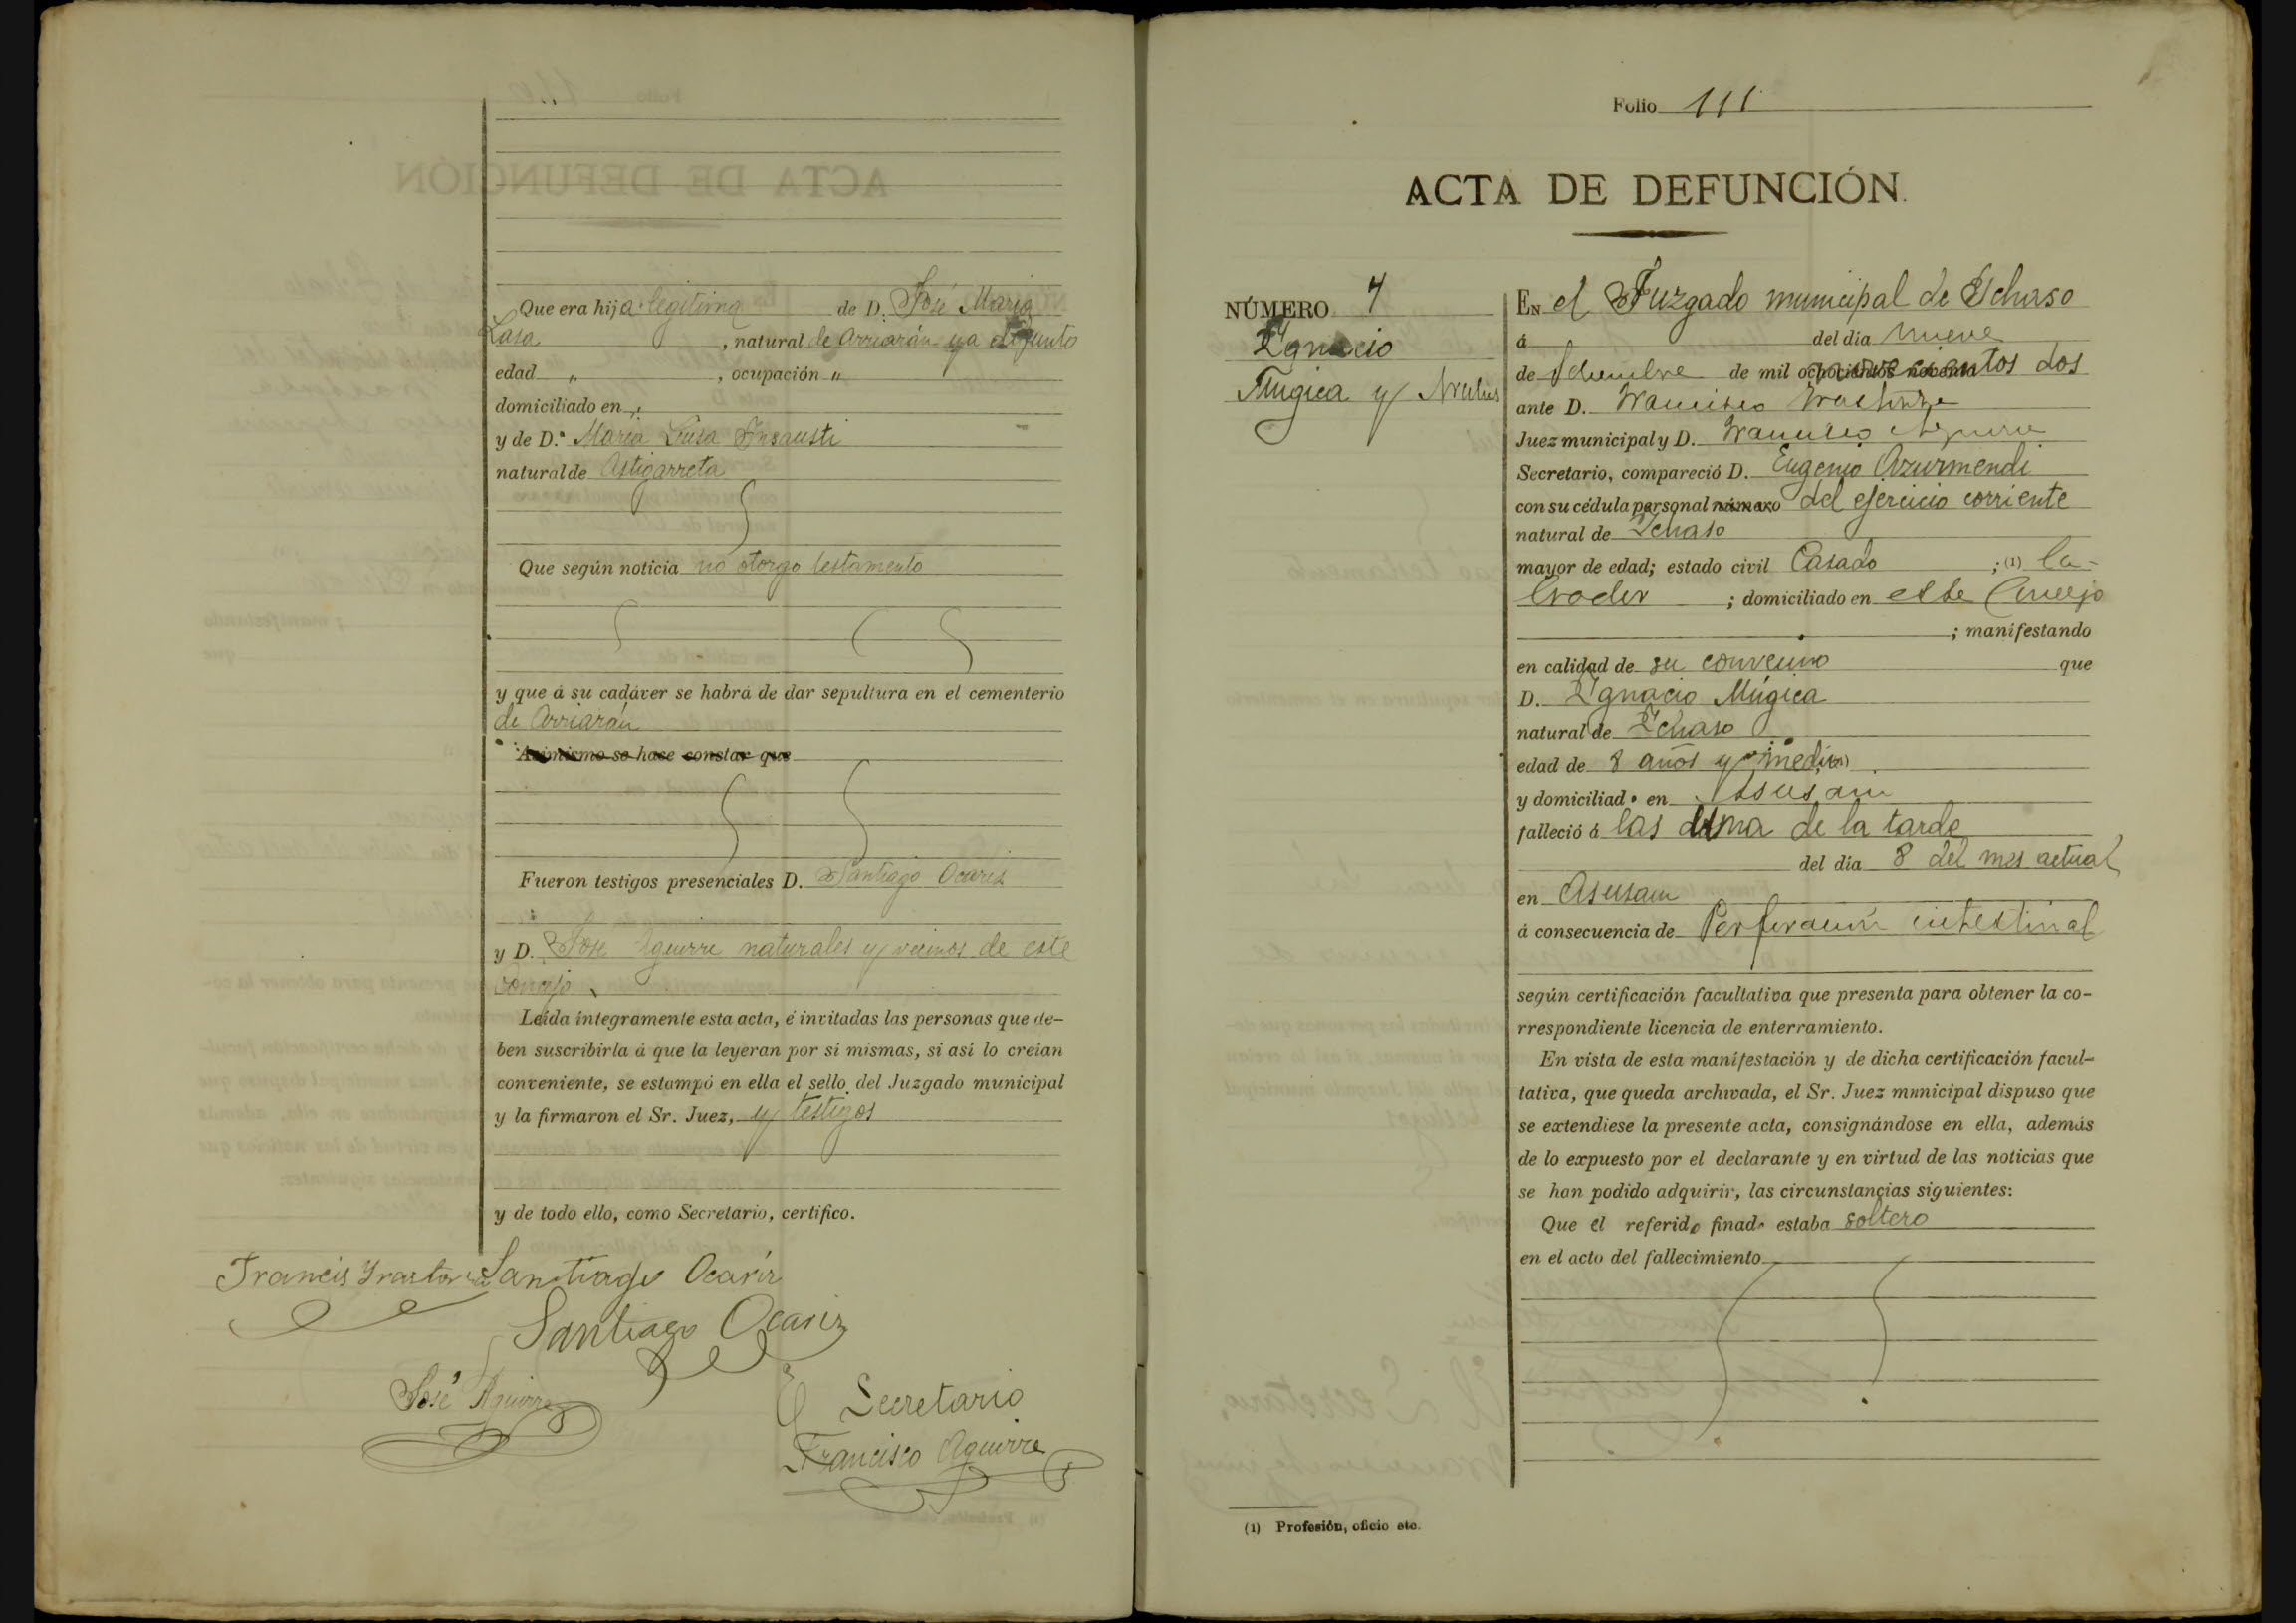 Que era hija legitima de D. José Maria
Lasa, natural de Arriarán ya difunto
edad „, ocupación „
domiciliado en „
y de D.ª Maria Luisa Insausti
natural de Astigarreta
Que según noticia no otorgo testamento
y que á su cadáver se habrá de dar sepultura en el cementerio
de Arriarán
Asimismo se hace constar que
Fueron testigos presenciales D. Santiago Ocariz
y D. José Aguirre naturales y vecinos de este
concejo
Leída íntegramente esta acta, é invitadas las personas que de-
ben suscribirla á que la leyeran por sí mismas, si así lo creían
conveniente, se estampó en ella el sello del Juzgado municipal
y la firmaron el Sr. Juez, y testigos
y de todo ello, como Secretario, certifico.
Santiago Ocariz
Santiago Ocariz
José Aguirre
El Secretario
Francisco Aguirre
Folio 111
ACTA DE DEFUNCIÓN.
NÚMERO 7
Ignacio
Mugica y
EN el Juzgado municipal de Ichaso
á del dia nueve
de de mil ochocientos noventa novecientos dos
ante D. Francisco
Juez municipal y D. Francisco Aguirre
Secretario, compareció D. Eugenio Azurmendi
con su cédula personal número del ejercicio corriente
natural de Ichaso
mayor de edad; estado civil Casado ; (1) la-
brador ; domiciliado en este Concejo
; manifestando
en calidad de su convecino que
D. Ignacio Múgica
natural de Ichaso
edad de 8 años y medio
y domiciliado en
falleció á las una de la tarde
del día 8 del mes actual
en
á consecuencia de Perforación intestinal
según certificación facultativa que presenta para obtener la co-
rrespondiente licencia de enterramiento.
En vista de esta manifestación y de dicha certificación facul-
tativa, que queda archivada, el Sr. Juez municipal dispuso que
se extendiese la presente acta, consignándose en ella, además
de lo expuesto por el declarante y en virtud de las noticias que
se han podido adquirir, las circunstancias siguientes:
Que el referido finado estaba soltero
en el acto del fallecimiento
(1) Profesión, oficio etc.